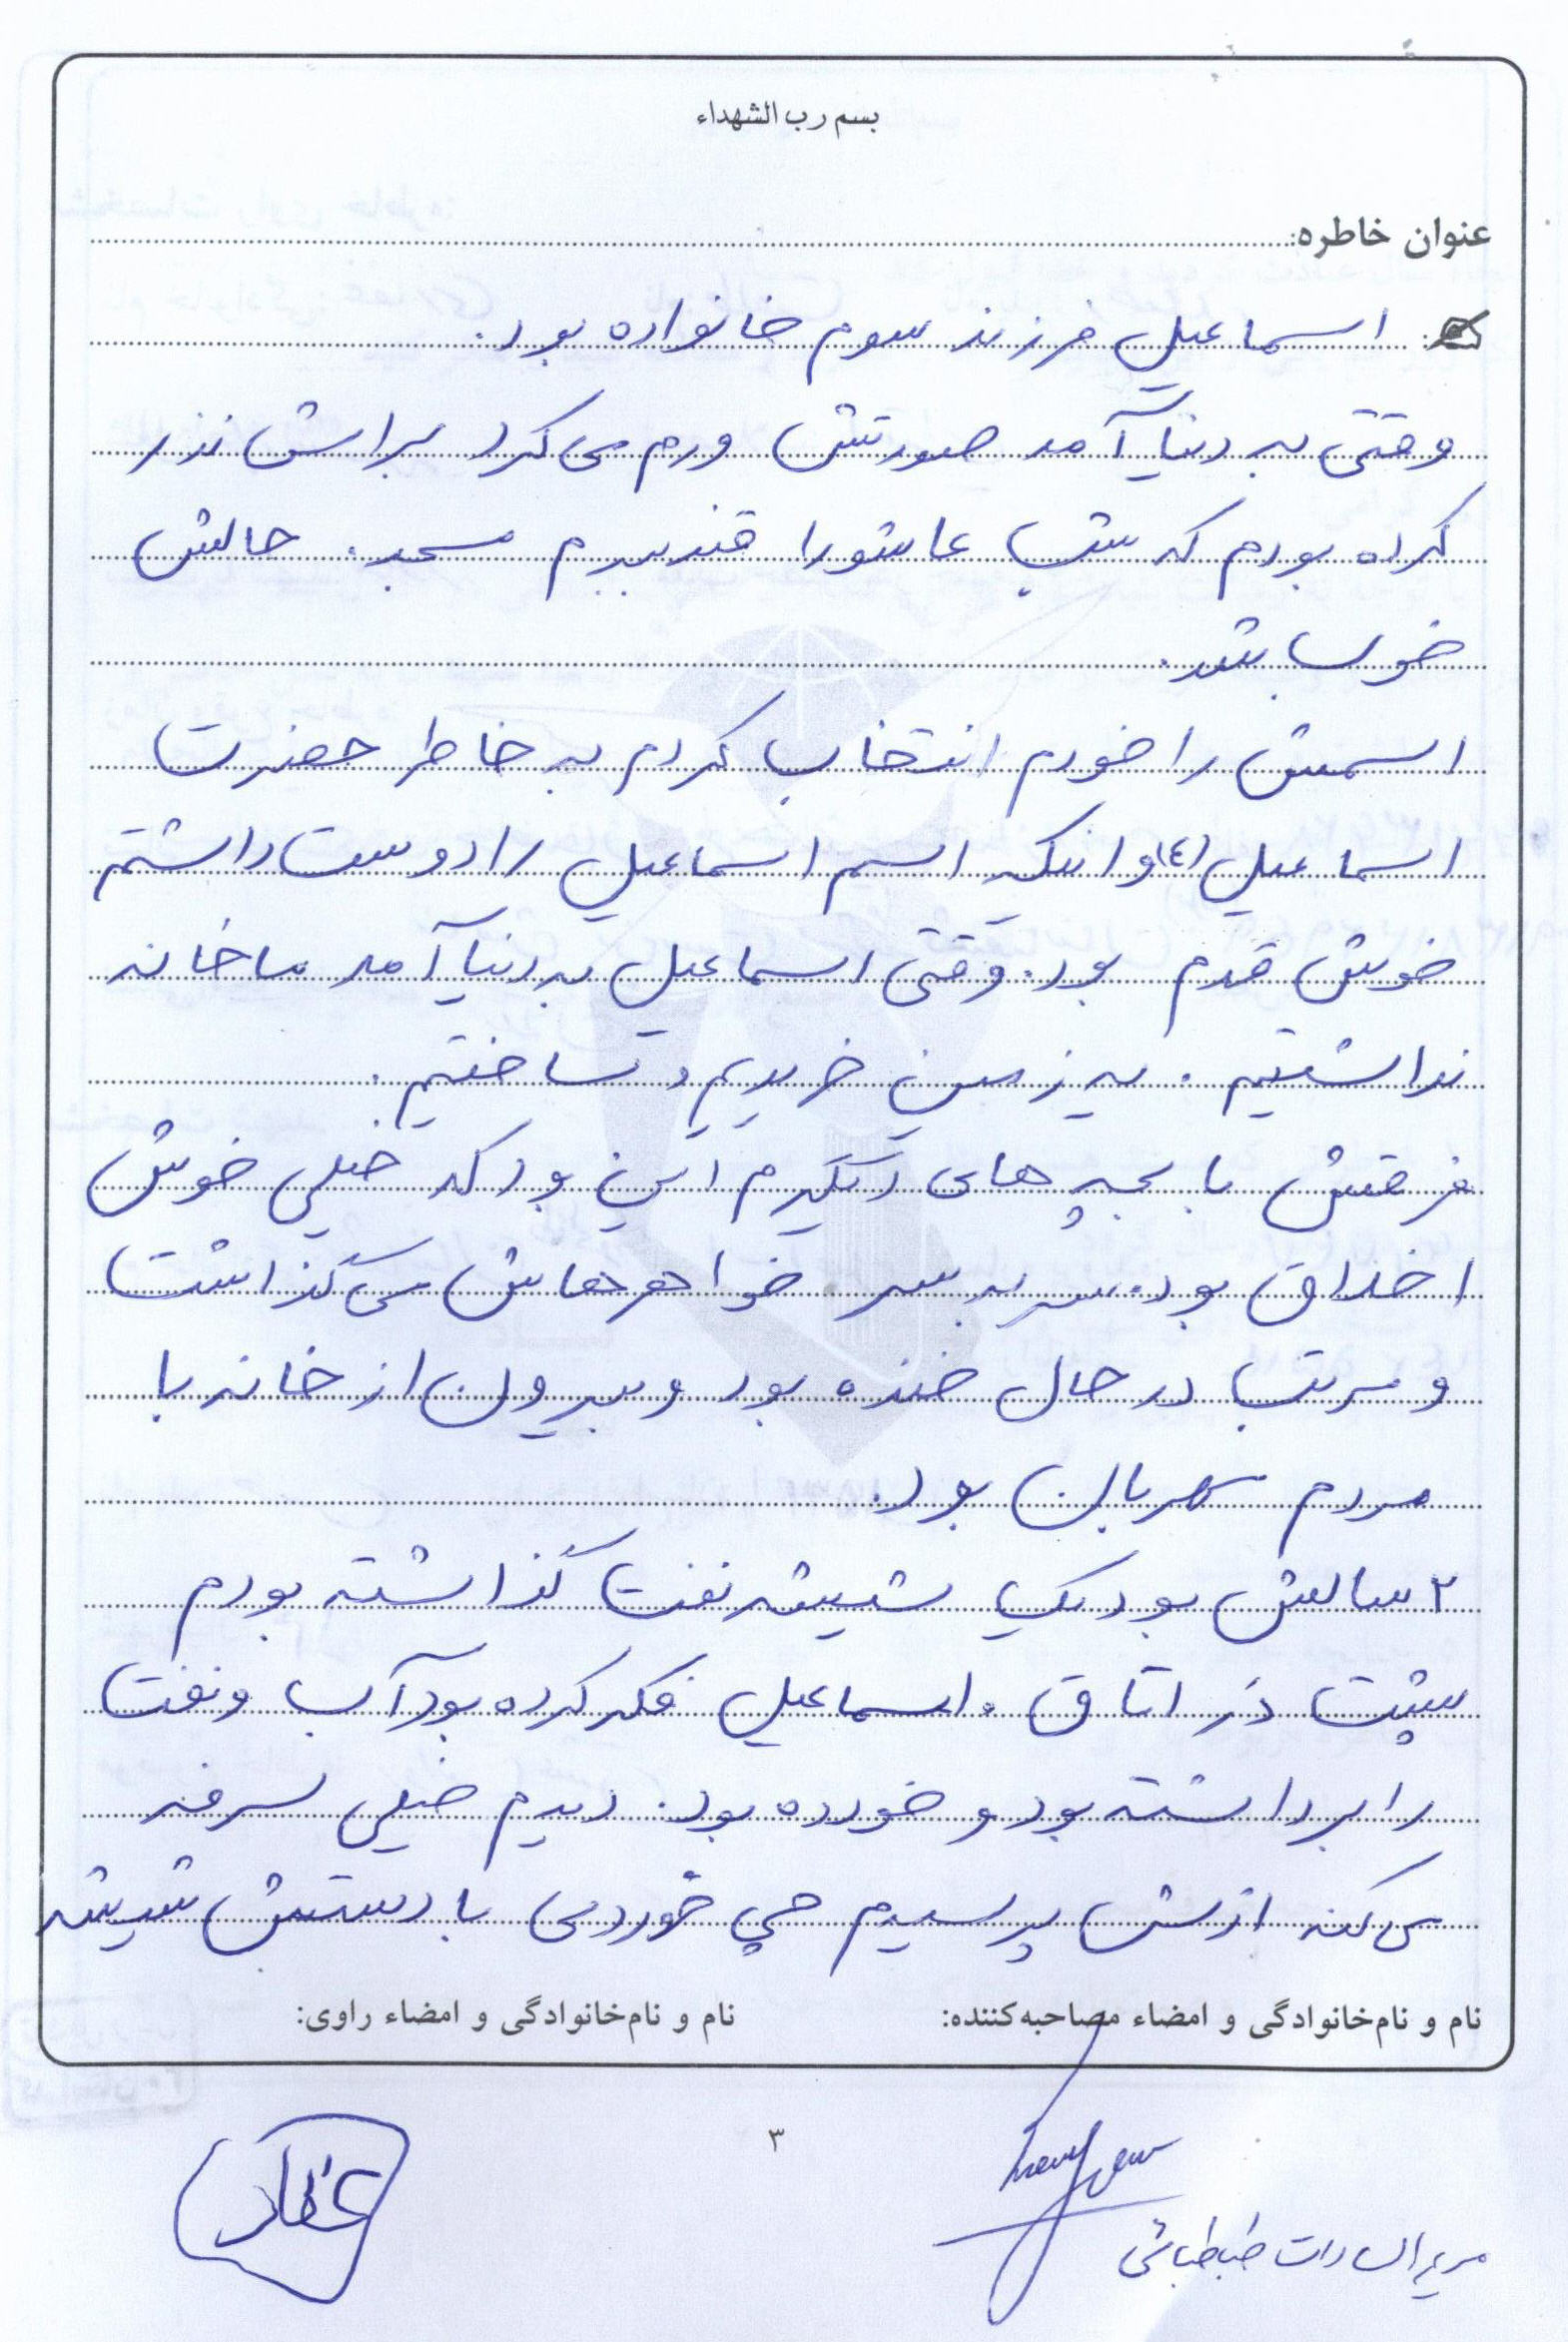 بسم رب الشهداء
عنوان خاطره:
اسماعیل فرزند سوم خانواده بود.
وقتی به دنیا آمد صورتش ورم می کرد براش نذر
کرده بودم که شب عاشورا قند ببرم مسجد. حالش
خوب شد.
اسمش را خودم انتخاب کردم به خاطر حضرت
اسماعیل (ع) و اینکه اسم اسماعیل را دوست داشتم
خوش قدم بود. وقتی اسماعیل به دنیا آمد ما خانه
نداشتیم. یه زمین خریدیم و ساختیم.
فرقش با بچه های دیگرم این بود که خیلی خوش
اخلاق بود. سر به سر خواهرهاش می گذاشت
و مرتب در حال خنده بود و بیرون از خانه با
مردم مهربان بود.
۲ سالش بود یک شیشه نفت گذاشته بودم
پشت در اتاق. اسماعیل فکر کرده بود آب و نفت
را برداشته بود و خورده بود. دیدم خیلی سرفه
می کنه ازش پرسیدم چی خوردی با دستش شیشه
نام و نام‌خانوادگی و امضاء مصاحبه‌کننده: نام و نام‌خانوادگی و امضاء راوی:
۳
مریم السادات طباطبائی